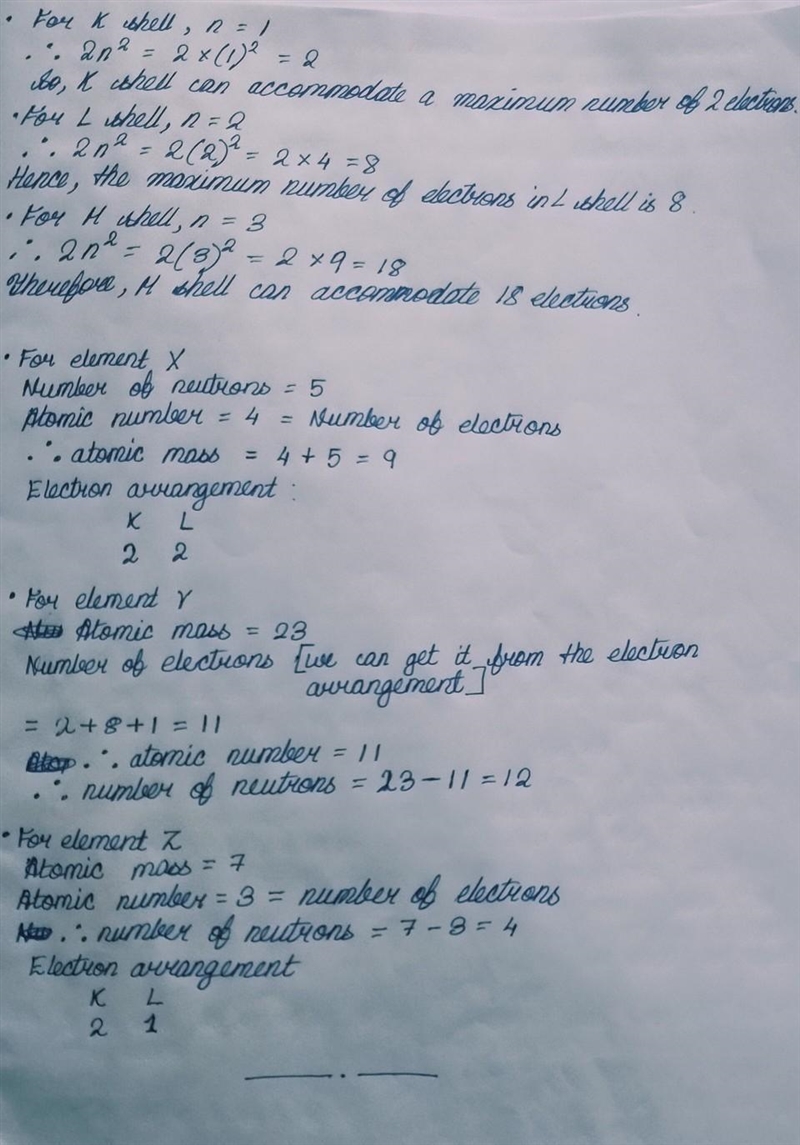 • For K shell, n = 1
∴ 2n² = 2×(1)² = 2
So, K shell can accommodate a maximum number of 2 electrons.
• For L shell, n = 2
∴ 2n² = 2(2)² = 2 × 4 = 8
Hence, the maximum number of electrons in L shell is 8.
• For M shell, n = 3
∴ 2n² = 2(3)² = 2 × 9 = 18
Therefore, M shell can accommodate 18 electrons.
• For element X
Number of neutrons = 5
Atomic number = 4 = Number of electrons
∴ atomic mass = 4 + 5 = 9
Electron arrangement :
K L
2 2
• For element Y
Atomic mass = 23
Number of electrons [we can get it from the electron
arrangement]
= 2 + 8 + 1 = 11
∴ atomic number = 11
∴ number of neutrons = 23 - 11 = 12
• For element Z
Atomic mass = 7
Atomic number = 3 = number of electrons
∴ number of neutrons = 7 - 3 = 4
Electron arrangement
K L
2 1